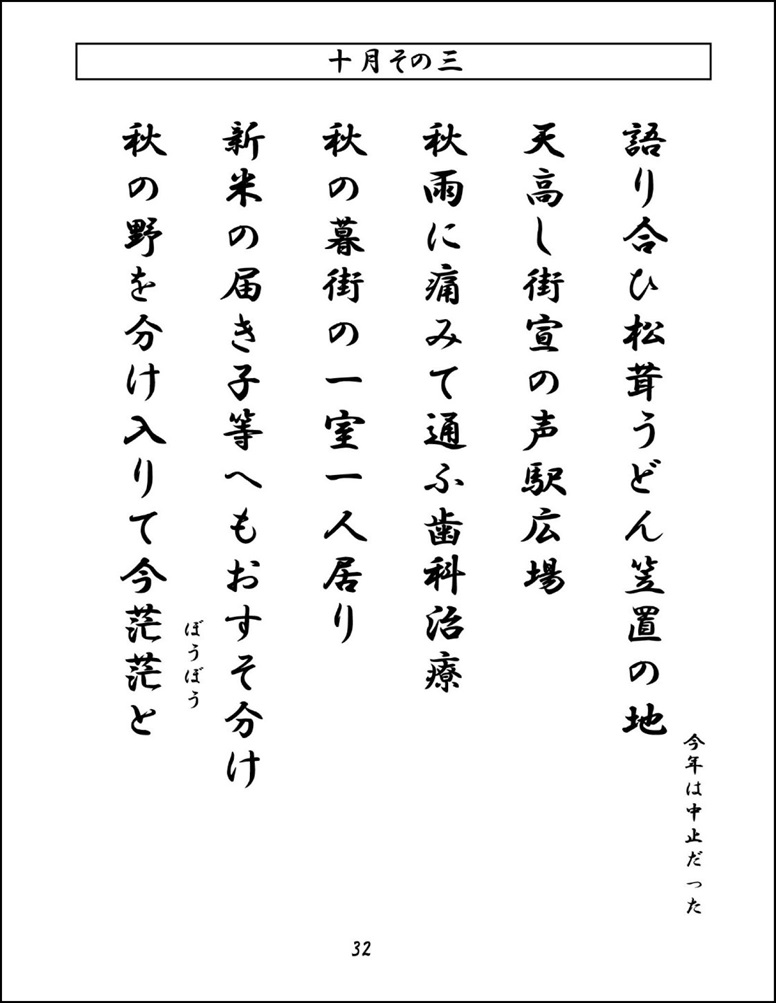 十月その三
語り合ひ松茸うどん笠置の地
今年は中止だった
天高し街宣の声駅広場
秋雨に痛みて通ふ歯科治療
秋の暮街の一室一人居り
新米の届き子等へもおすそ分け
秋の野を分け入りて今茫茫と
ぼうぼう
32